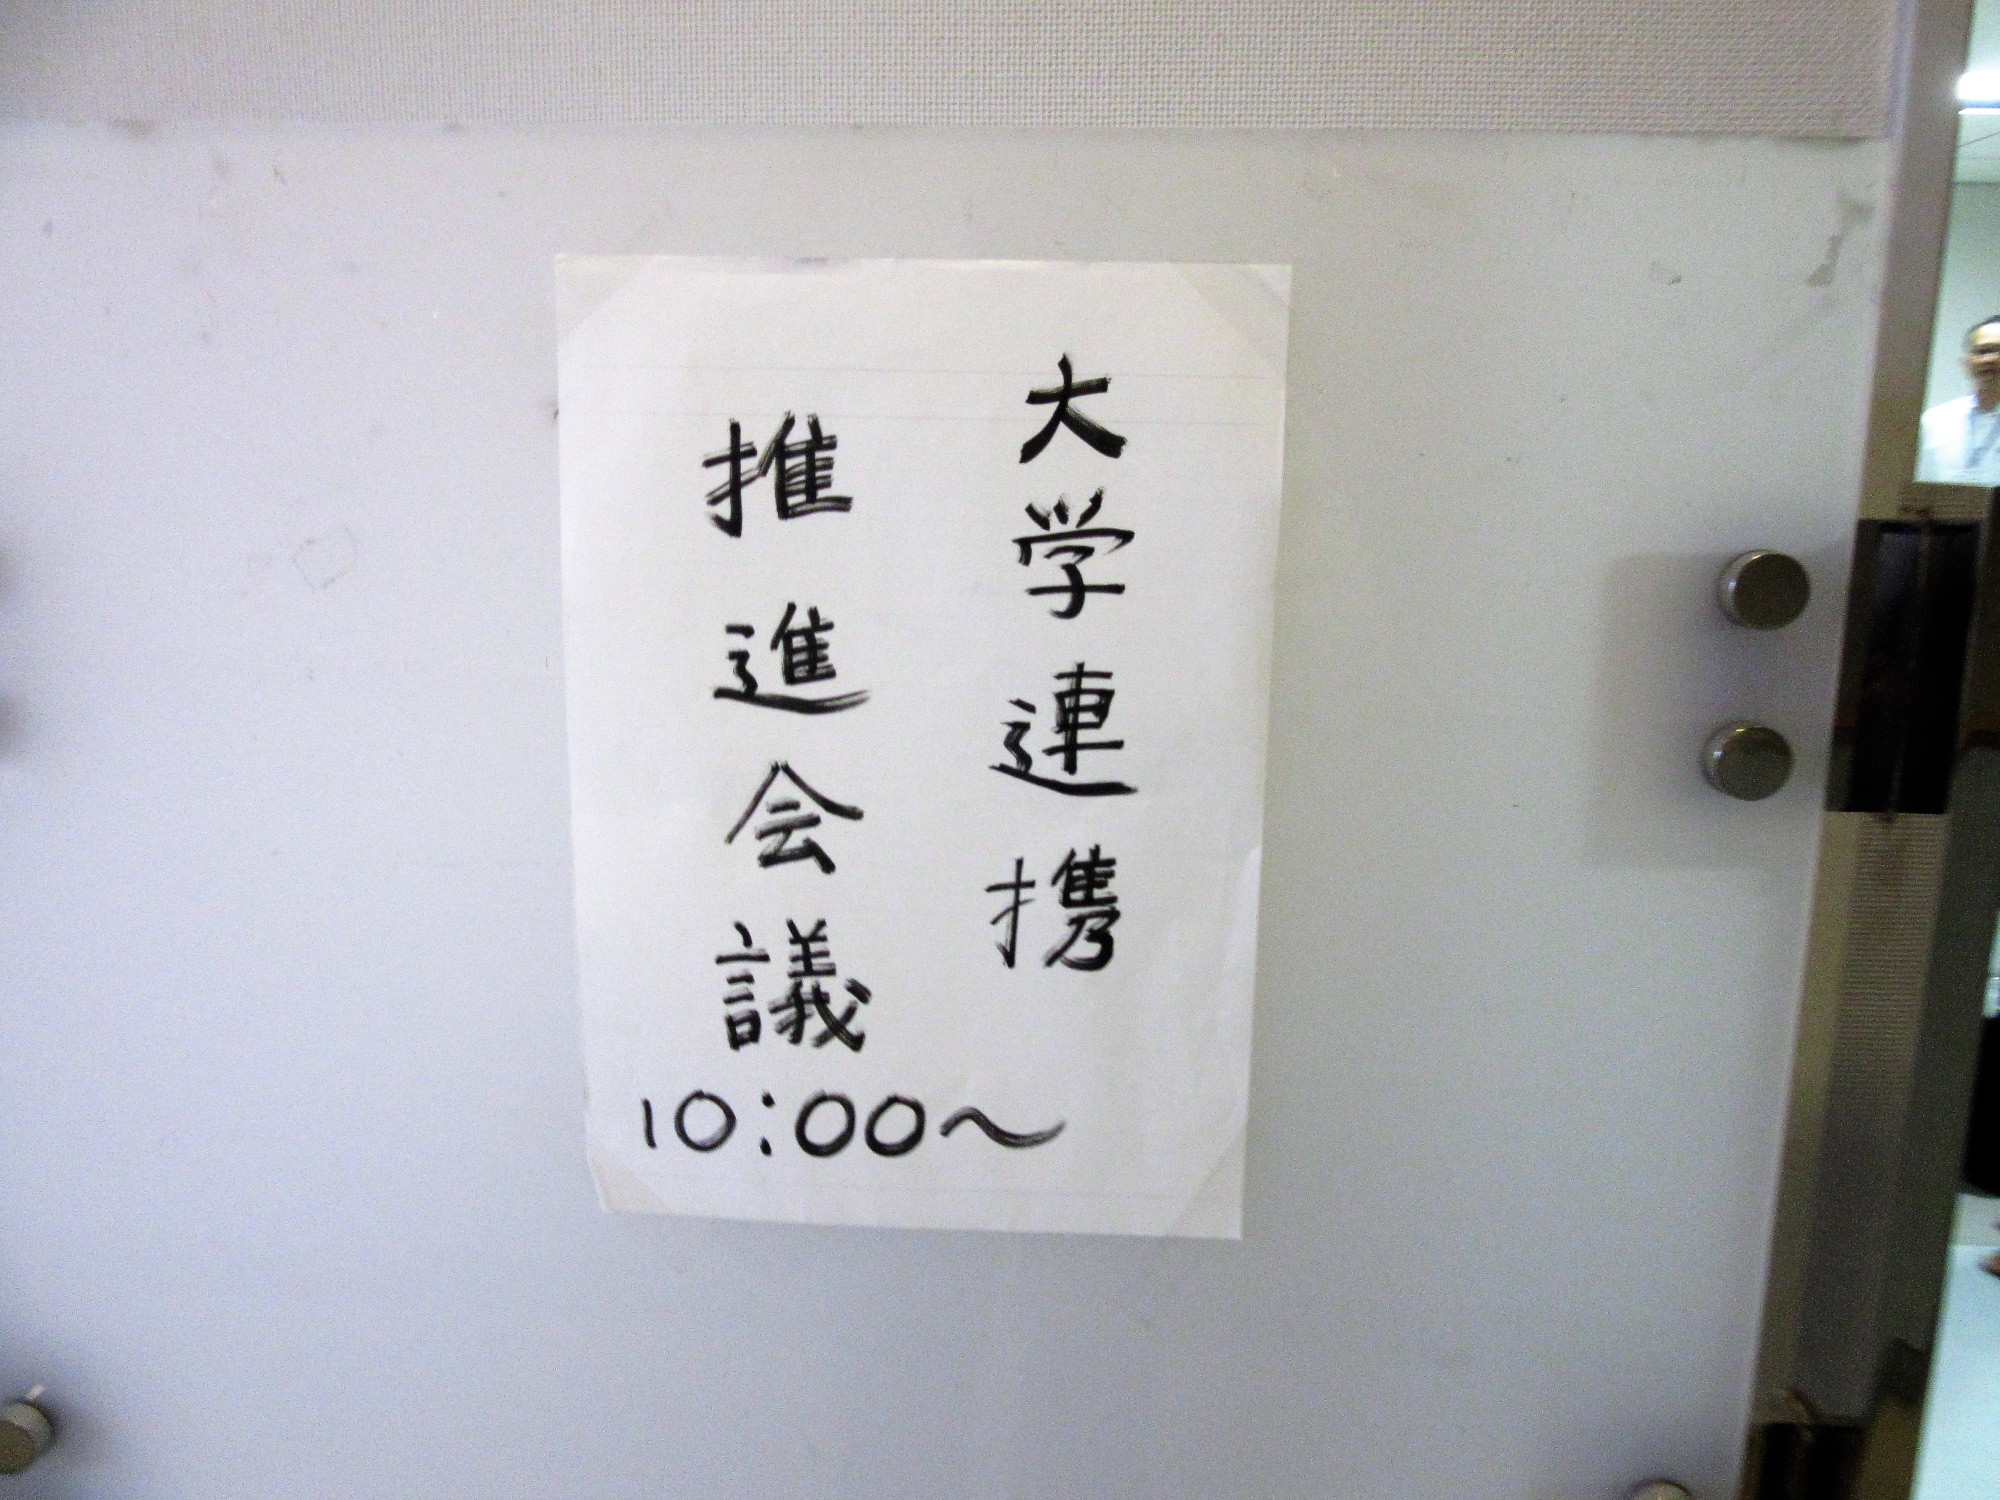 大学連携
推進会議
10:00～